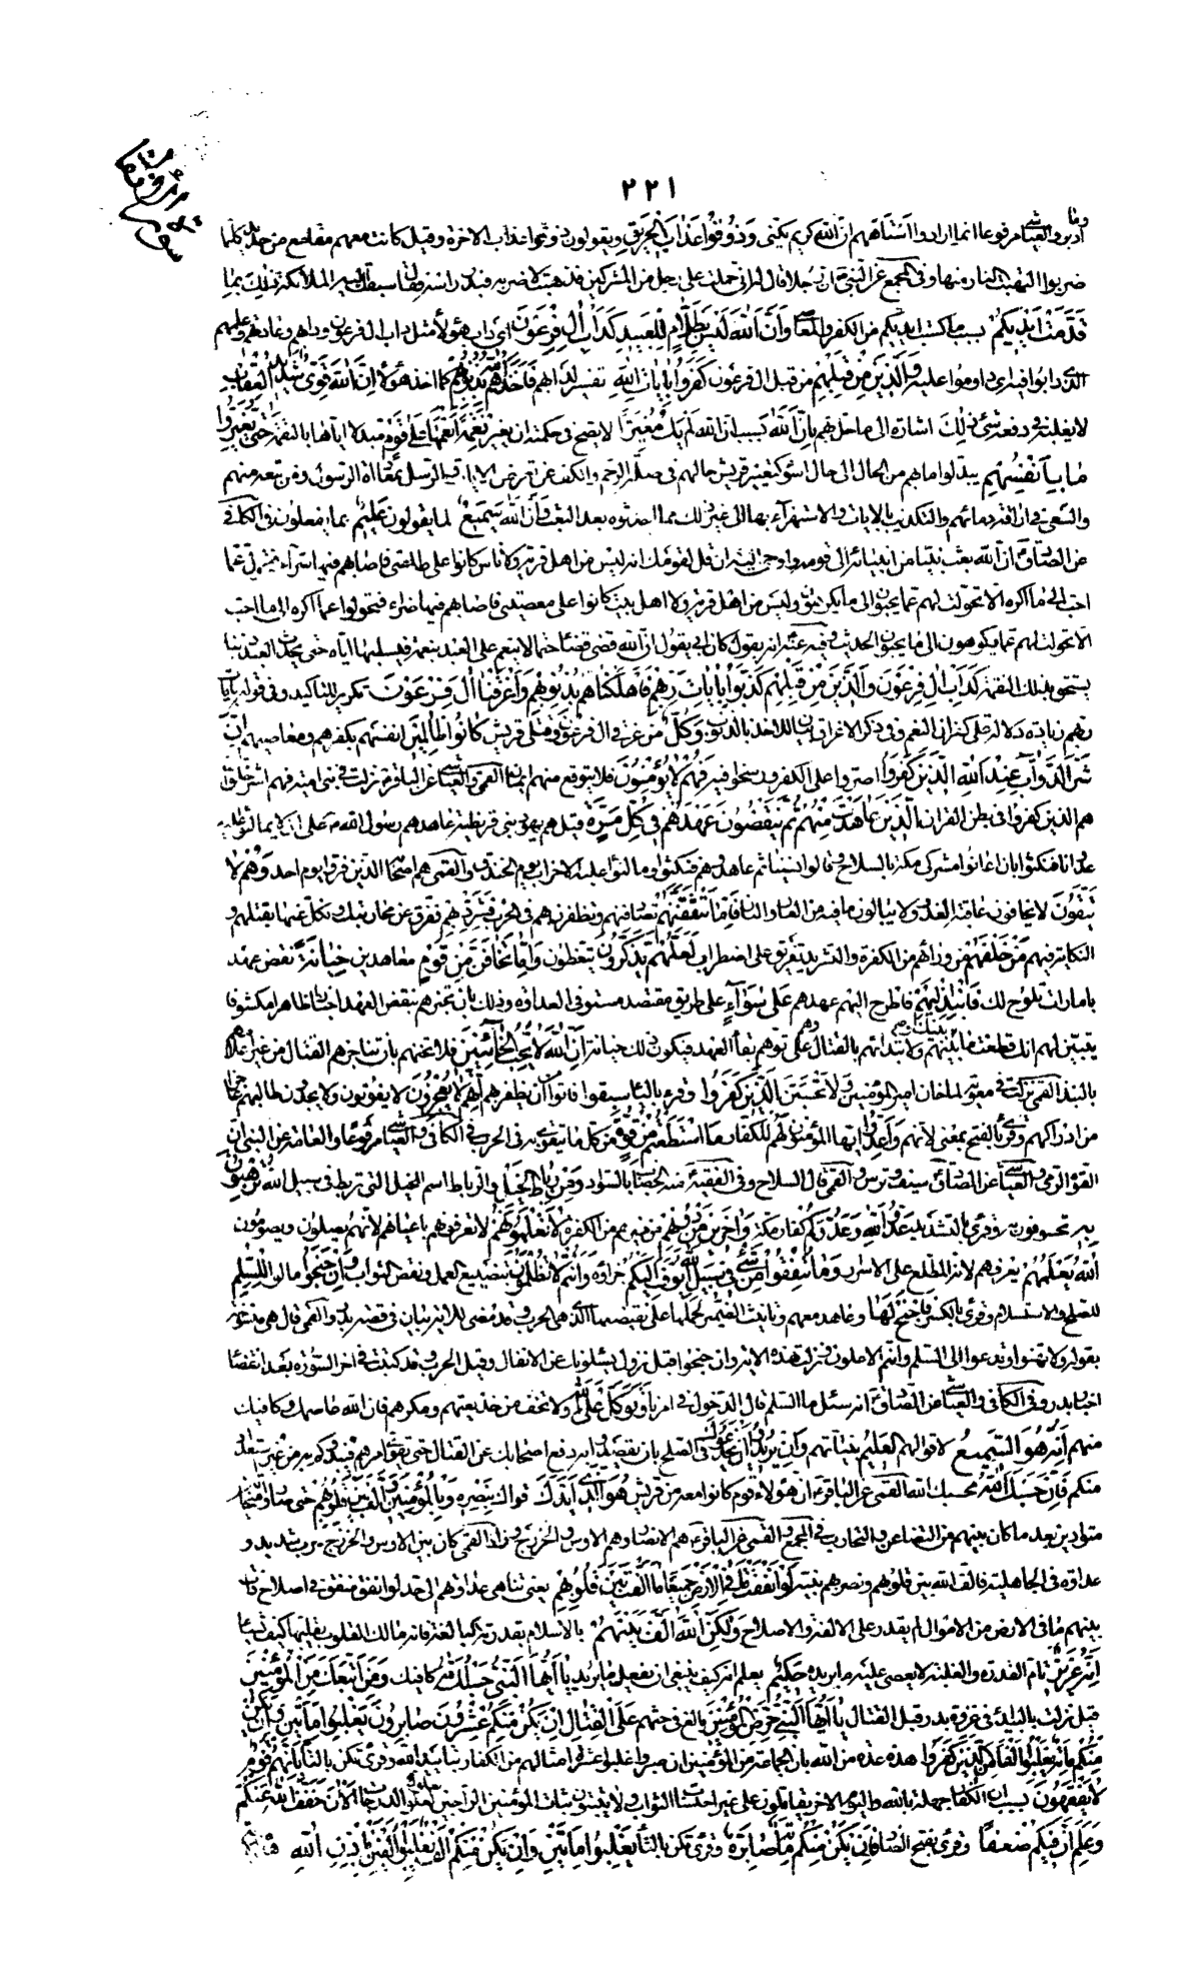 ٢٢١
ادبر والعياشي مرفوعا انما ارادوا استاههم ان الله كريم يكني وَذُوقُوا عَذَابَ الْحَرِيقِ ويقولون ذوقوا عذاب الاخرة وقيل كانت معهم مقامع من حديد كلما
ضربوا التهبت النار منها وفي المجمع عن النبي ان رجلا قال له اني حملت على رجل من المشركين فذهبت لاضربه فبدر راسه فقال سبقك اليه الملائكة ذٰلِكَ بِمَا
قَدَّمَتْ اَيْدِيكُمْ بسبب ما كسبت ايديكم من الكفر والمعاصي وَاَنَّ اللهَ لَيْسَ بِظَلَّامٍ لِلْعَبِيدِ كَدَاْبِ اٰلِ فِرْعَوْنَ اي داب هؤلاء مثل داب ال فرعون ودابهم وعادتهم وعملهم
الذي دابوا فيه اي داوموا عليه وَالَّذِينَ مِنْ قَبْلِهِمْ من قبل ال فرعون كَفَرُوا بِاٰيَاتِ اللهِ تفسير لدابهم فَاَخَذَهُمُ اللهُ بِذُنُوبِهِمْ كما اخذ هؤلاء اِنَّ اللهَ قَوِيٌّ شَدِيدُ الْعِقَابِ
لا يغلبه في دفعه شيء ذٰلِكَ اشارة الى ما حل بهم بِاَنَّ اللهَ بسبب ان الله لَمْ يَكُ مُغَيِّرًا لا يصح في حكمته ان يغير نِعْمَةً اَنْعَمَهَا عَلٰى قَوْمٍ مبدلا اياها بالنقمة حَتّٰى يُغَيِّرُوا
مَا بِاَنْفُسِهِمْ يبدلوا ما بهم من الحال الى حال اسوء كتغيير قريش حالهم في صلة الرحم والكف عن تعرض الايات والرسل بمعاداة الرسول ومن تبعه منهم
والسعي في اراقة دمائهم والتكذيب بالايات والاستهزاء بها الى غير ذلك مما احدثوه بعد البعث وَاَنَّ اللهَ سَمِيعٌ لما يقولون عَلِيمٌ بما يفعلون في الكافي
عن الصادق ان الله بعث نبيا من انبيائه الى قومه واوحى اليه ان قل لقومك انه ليس من اهل قرية ولا ناس كانوا على طاعتي فاصابهم فيها سراء فتحولوا عما
احب الى ما اكره الا تحولت لهم عما يحبون الى ما يكرهون وليس من اهل قرية ولا اهل بيت كانوا على معصيتي فاصابهم فيها ضراء فتحولوا عما اكره الى ما احب
الا تحولت لهم عما يكرهون الى ما يحبون الحديث وفيه عنه انه يقول كان ابي يقول ان الله قضى قضاء حتما لا ينعم على العبد بنعمة فيسلبها اياه حتى يحدث العبد ذنبا
يستحق بذلك النقمة كَدَاْبِ اٰلِ فِرْعَوْنَ وَالَّذِينَ مِنْ قَبْلِهِمْ كَذَّبُوا بِاٰيَاتِ رَبِّهِمْ فَاَهْلَكْنَاهُمْ بِذُنُوبِهِمْ وَاَغْرَقْنَا اٰلَ فِرْعَوْنَ تكرير للتاكيد وفي قوله بايات
ربهم زيادة دلالة على كفران النعم وفي ذكر الاغراق بيان للاخذ بالذنوب وَكُلٌّ من غرقى ال فرعون وقتلى قريش كَانُوا ظَالِمِينَ انفسهم بكفرهم ومعاصيهم اِنَّ
شَرَّ الدَّوَابِّ عِنْدَ اللهِ الَّذِينَ كَفَرُوا اصروا على الكفر ورسخوا فيه فَهُمْ لَا يُؤْمِنُونَ فلا يتوقع منهم ايمان القمي والعياشي عن الباقر نزلت في بني امية فهم اشر خلق الله
هم الذين كفروا في بطن القران الَّذِينَ عَاهَدْتَ مِنْهُمْ ثُمَّ يَنْقُضُونَ عَهْدَهُمْ فِي كُلِّ مَرَّةٍ قيل هم يهود بني قريظة عاهدهم رسول الله على ان لا يمالئوا عليه
عدوا فنكثوا بان اعانوا مشركي مكة بالسلاح وقالوا نسينا ثم عاهدهم فنكثوا ومالئوا عليه الاحزاب يوم الخندق والقمي هم اصحابه الذين فروا يوم احد وَهُمْ لَا
يَتَّقُونَ لا يخافون عاقبة الغدر ولا يبالون ما فيه من العار والنار فَاِمَّا تَثْقَفَنَّهُمْ تصادفنهم وتظفرن بهم فِي الْحَرْبِ فَشَرِّدْ بِهِمْ ففرق عن محاربتك ونكل عنها بقتلهم و
النكاية فيهم مَنْ خَلْفَهُمْ من وراءهم من الكفرة والتشريد تفريق على اضطراب لَعَلَّهُمْ يَذَّكَّرُونَ يتعظون وَاِمَّا تَخَافَنَّ مِنْ قَوْمٍ معاهدين خِيَانَةً نقض عهد
بامارات تلوح لك فَانْبِذْ اِلَيْهِمْ فاطرح اليهم عهدهم عَلٰى سَوَاءٍ على طريق مقتصد مستو في العداوة وذلك بان تخبرهم بنقض العهد اخبارا ظاهرا مكشوفا
يتبين لهم انك قطعت ما بينك وبينهم ولا تبداهم بالقتال وهم على توهم بقاء العهد فيكون ذلك خيانة اِنَّ اللهَ لَا يُحِبُّ الْخَائِنِينَ فلا تخنهم بان تناجزهم القتال من غير اعلامهم
بالنبذ القمي نزلت في معوية لما خان امير المؤمنين وَلَا تَحْسَبَنَّ الَّذِينَ كَفَرُوا وقرء بالياء سَبَقُوا فاتوا ان يظفر بهم اِنَّهُمْ لَا يُعْجِزُونَ لا يفوتون ولا يجدون طالبهم عاجزا
من ادراكهم وقرئ بالفتح بمعنى لانهم وَاَعِدُّوا ايها المؤمنون لَهُمْ للكفار مَا اسْتَطَعْتُمْ مِنْ قُوَّةٍ من كل ما يتقوى به في الحرب في الكافي والعياشي مرفوعا والعامة عن النبي ان
القوة الرمي والعياشي عن الصادق سيف وترس والقمي قال السلاح وفي الفقيه منه الخضاب بالسواد وَمِنْ رِبَاطِ الْخَيْلِ والرباط اسم الخيل التي تربط في سبيل الله تُرْهِبُونَ
بِهِ تخوفون به وقرئ بالتشديد عَدُوَّ اللهِ وَعَدُوَّكُمْ كفار مكة وَاٰخَرِينَ مِنْ دُونِهِمْ من غيرهم من الكفرة لَا تَعْلَمُونَهُمْ لا تعرفونهم باعيانهم لانهم يصلون ويصومون
اللهُ يَعْلَمُهُمْ يعرفهم لانه المطلع على الاسرار وَمَا تُنْفِقُوا مِنْ شَيْءٍ فِي سَبِيلِ اللهِ يُوَفَّ اِلَيْكُمْ جزاؤه وَاَنْتُمْ لَا تُظْلَمُونَ بتضييع العمل ونقص الثواب وَاِنْ جَنَحُوا مالوا لِلسَّلْمِ
للصلح والاستسلام وقرئ بالكسر فَاجْنَحْ لَهَا وعاهد معهم وتانيث الضمير لحملها على نقيضها الذي هو الحرب وقد مضى لهذه الاية بيان في قصة بدر والقمي قال هي منسوخة
بقوله ولا تهنوا وتدعوا الى السلم وانتم الاعلون فنزلت هذه الاية وان جنحوا قبل نزول يسئلونك عن الانفال وقبل الحرب وقد كتبت في اخر السورة بعد انقضاء
اخبار بدر وفي الكافي والعياشي عن الصادق انه سئل ما السلم قال الدخول في امرنا وَتَوَكَّلْ عَلَى اللهِ ولا تخف من خديعتهم ومكرهم فان الله عاصمك وكافيك
منهم اِنَّهُ هُوَ السَّمِيعُ لاقوالهم الْعَلِيمُ بنياتهم وَاِنْ يُرِيدُوا اَنْ يَخْدَعُوكَ في الصلح بان يقصدوا به دفع اصحابك عن القتال حتى يقوى امرهم فيبدؤكم به من غير استعداد
منكم فَاِنَّ حَسْبَكَ اللهُ محسبك الله القمي عن الباقر ان هؤلاء قوم كانوا معه من قريش هُوَ الَّذِي اَيَّدَكَ قواك بِنَصْرِهِ وَبِالْمُؤْمِنِينَ وَاَلَّفَ بَيْنَ قُلُوبِهِمْ حتى صاروا متحابين
متوادين بعد ما كان بينهم من التضاغن والتحارب في المجمع والقمي عن الباقر هم الانصار وهم الاوس والخزرج وزاد القمي كان بين الاوس والخزرج حرب شديد و
عداوة في الجاهلية فالف الله بين قلوبهم ونصر بهم نبيه لَوْ اَنْفَقْتَ مَا فِي الْاَرْضِ جَمِيعًا مَا اَلَّفْتَ بَيْنَ قُلُوبِهِمْ يعني تناهى عداوتهم الى حد لو انفق منفق في اصلاح ذات
بينهم ما في الارض من الاموال لم يقدر على الالفة والاصلاح وَلٰكِنَّ اللهَ اَلَّفَ بَيْنَهُمْ بالاسلام بقدرته البالغة فانه مالك القلوب يقلبها كيف يشاء
اِنَّهُ عَزِيزٌ تام القدرة والغلبة لا يعصى عليه ما يريده حَكِيمٌ يعلم انه كيف ينبغي ان يفعل ما يريد يَا اَيُّهَا النَّبِيُّ حَسْبُكَ اللهُ كافيك وَمَنِ اتَّبَعَكَ مِنَ الْمُؤْمِنِينَ
قيل نزلت بالبيداء في غزوة بدر قبل القتال يَا اَيُّهَا النَّبِيُّ حَرِّضِ الْمُؤْمِنِينَ بالغ في حثهم عَلَى الْقِتَالِ اِنْ يَكُنْ مِنْكُمْ عِشْرُونَ صَابِرُونَ يَغْلِبُوا مِائَتَيْنِ وَاِنْ يَكُنْ
مِنْكُمْ مِائَةٌ يَغْلِبُوا اَلْفًا مِنَ الَّذِينَ كَفَرُوا هذه عدة من الله بان الجماعة من المؤمنين ان صبروا غلبوا عشرة امثالهم من الكفار بتاييد الله وقرئ تكن بالتاء بِاَنَّهُمْ قَوْمٌ
لَا يَفْقَهُونَ بسبب ان الكفار جهلة بالله واليوم الاخر يقاتلون على غير احتساب الثواب ولا يثبتون ثبات المؤمنين الراجين لعوالي الدرجات اَلْاٰنَ خَفَّفَ اللهُ عَنْكُمْ
وَعَلِمَ اَنَّ فِيكُمْ ضَعْفًا وقرئ بفتح الضاد فَاِنْ يَكُنْ مِنْكُمْ مِائَةٌ صَابِرَةٌ وقرئ تكن بالتاء يَغْلِبُوا مِائَتَيْنِ وَاِنْ يَكُنْ مِنْكُمْ اَلْفٌ يَغْلِبُوا اَلْفَيْنِ بِاِذْنِ اللهِ